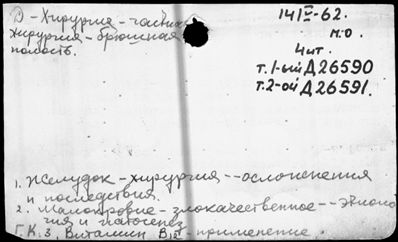 Д - Хирургия - частная
хирургия - брюшная
полость.
14 IV-62.
м.о
4 чит.
т.1-ый Д26590
т.2-ой Д26591.
1. Желудок - хирургия -- осложнения
и последствия.
2. Малокровие - злокачественное -- этиоло
гия и патогенез
Г.К. 3. Витамин B12 - применение.